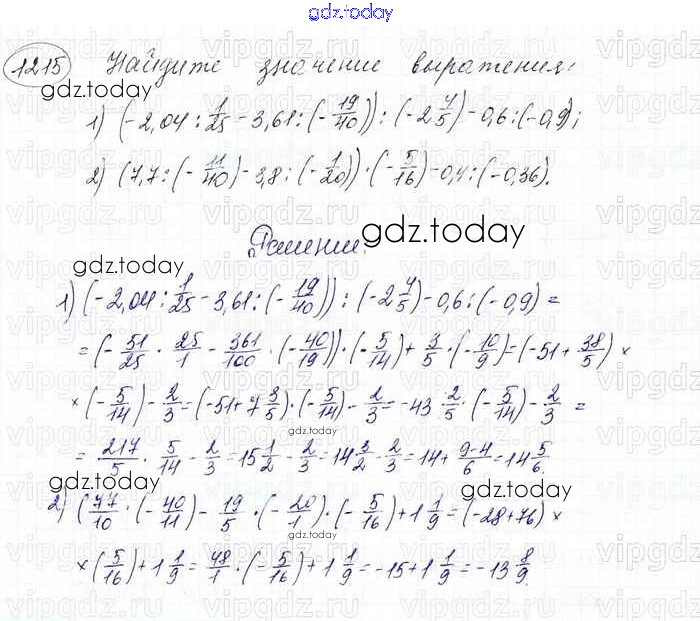 gdz.today
1215 Найдите значение выражения:
gdz.today
1) (-2,04 : 1/25 - 3,61 : (-19/40)) : (-2 4/5) - 0,6 : (-0,9);
2) (7,7 : (-11/40) - 3,8 : (-1/20)) · (-5/16) - 0,4 : (-0,36).
Решение. gdz.today
gdz.today
1) (-2,04 : 1/25 - 3,61 : (-19/40)) : (-2 4/5) - 0,6 : (-0,9) =
= (-51/25 · 25/1 - 361/100 · (-40/19)) · (-5/14) + 3/5 · (-10/9) = (-51 + 38/5) ×
× (-5/14) - 2/3 = (-51 + 7 3/5) · (-5/14) - 2/3 = -43 2/5 · (-5/14) - 2/3 =
gdz.today
= 217/5 · 5/14 - 2/3 = 15 1/2 - 2/3 = 14 3/2 - 2/3 = 14 + 9-4/6 = 14 5/6.
gdz.today gdz.today
2) (77/10 · (-40/11) - 19/5 · (-20/1) · (-5/16) + 1 1/9 = (-28 + 76) ×
× (5/16) + 1 1/9 = 48/1 · (-5/16) + 1 1/9 = -15 + 1 1/9 = -13 8/9.
gdz.today